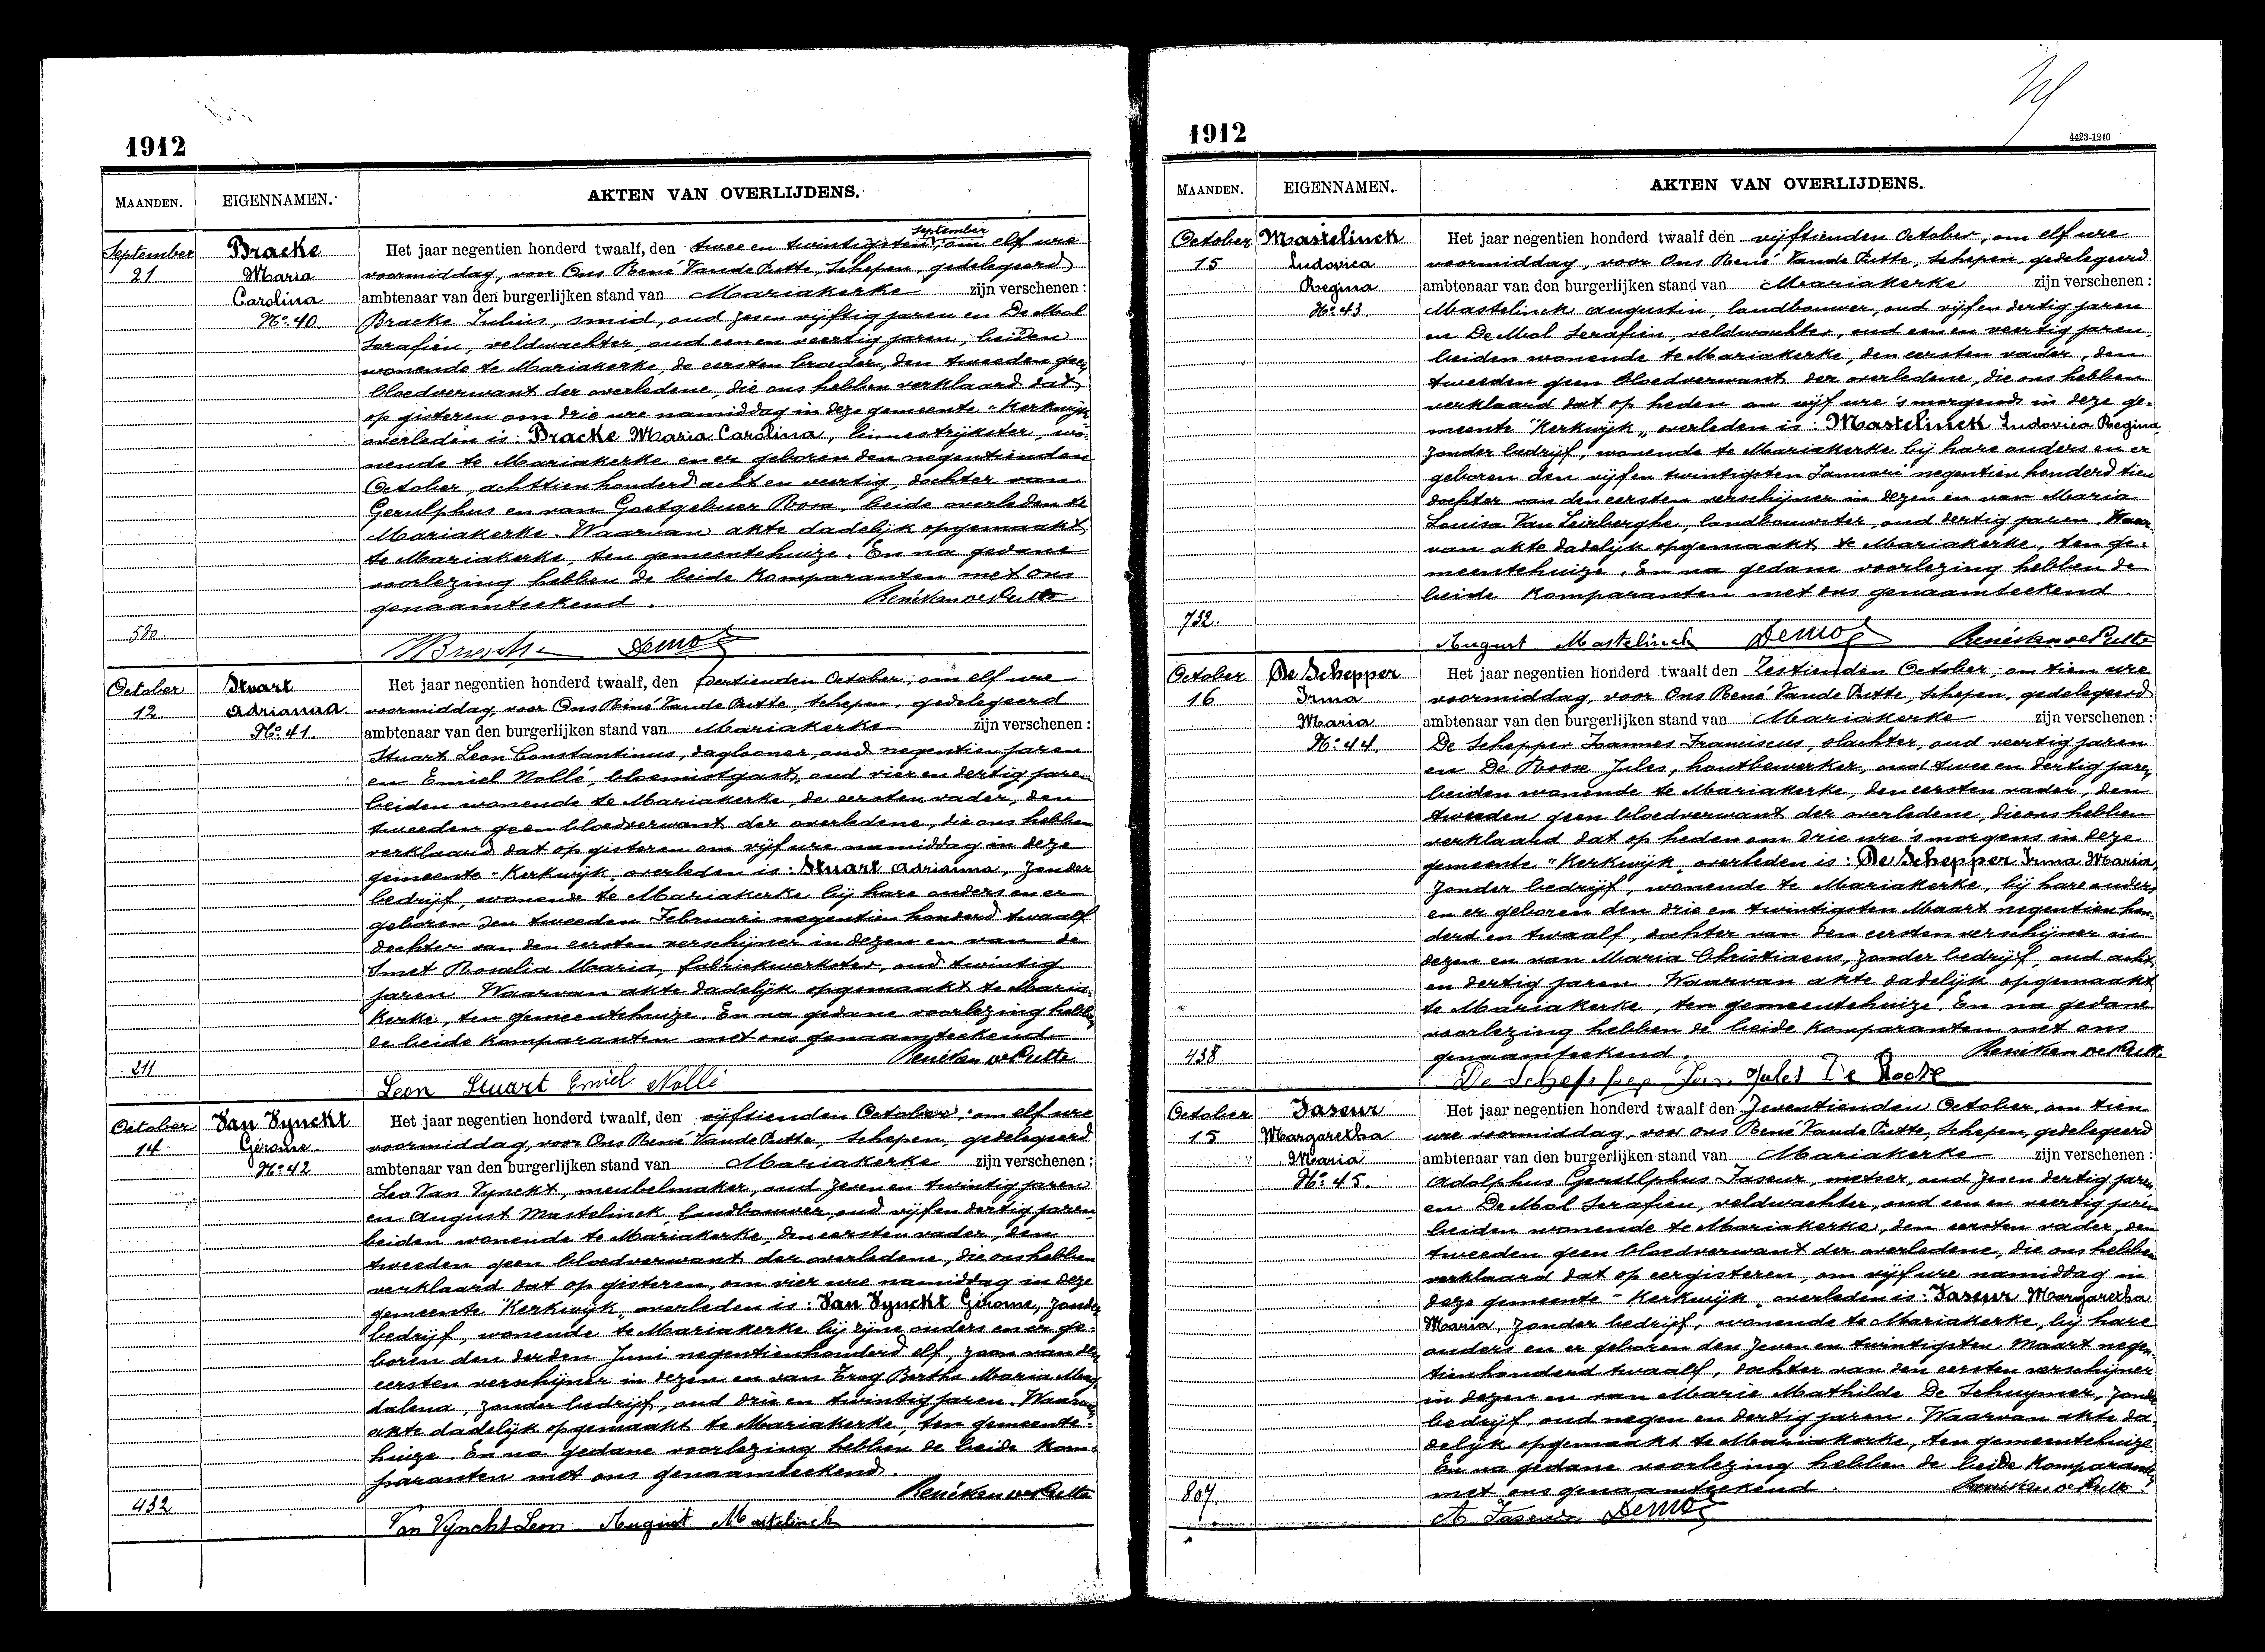 1912
MAANDEN. EIGENNAMEN. AKTEN VAN OVERLIJDENS.
September
21
Bracke
Maria
Carolina
No. 40
Het jaar negentien honderd twaalf, den twee en twintigsten September, om elf ure
voormiddag, voor Ons René Vande Putte, Schepen, gedelegeerd
ambtenaar van den burgerlijken stand van Mariakerke zijn verschenen :
Bracke Julius, smid, oud zes en vijftig jaren en De Mol
Serafien, veldwachter, oud een en veertig jaren, beiden
wonende te Mariakerke, de eersten broeder, den tweeden geen
bloedverwant der overledene, die ons hebben verklaard dat
op gisteren om drie ure namiddag in deze gemeente "Kerkwijk
overleden is : Bracke Maria Carolina, linnestrijkster, wo-
nende te Mariakerke en er geboren den negentienden
October, achttien honderd acht en veertig, dochter van
Gerulphus en van Goetgebuer Rosa, beide overleden te
Mariakerke. Waarvan akte dadelijk opgemaakt
te Mariakerke, ten gemeentehuize. En na gedane
voorlezing hebben de beide komparanten met ons
genaamteekend. René Van de Putte
580.
Demol
October
12
Stuart
Adrianna
No. 41.
Het jaar negentien honderd twaalf, den dertienden October, om elf ure
voormiddag, voor Ons René Vande Putte, Schepen, gedelegeerd
ambtenaar van den burgerlijken stand van Mariakerke zijn verschenen :
Stuart Leon Constantinus, daglooner, oud negentien jaren
en Emiel Nollé, bloemistgast, oud vier en dertig jaren
beiden wonende te Mariakerke, de eersten vader, den
tweeden geen bloedverwant der overledene, die ons hebben
verklaard dat op gisteren om vijf ure namiddag in deze
gemeente "Kerkwijk, overleden is : Stuart Adrianna, zonder
bedrijf, wonende te Mariakerke bij hare ouders en er
geboren den tweeden Februari negentien honderd twaalf
dochter van den eersten verschijner in dezen en van de
Smet Rosalia Maria, fabriekwerkster, oud twintig
jaren. Waarvan akte dadelijk opgemaakt te Maria-
kerke, ten gemeentehuize. En na gedane voorlezing hebben
de beide komparanten met ons genaamteekend.
René Van de Putte
211
Leon Stuart Emiel Nollé
October
14
Van Vynckt
Gérome
No. 42
Het jaar negentien honderd twaalf, den vijftienden October, om elf ure
voormiddag, voor Ons René Vande Putte, Schepen, gedelegeerd
ambtenaar van den burgerlijken stand van Mariakerke zijn verschenen :
Leo Van Vynckt, meubelmaker, oud zeven en twintig jaren
en August Mastelinck, landbouwer, oud vijf en dertig jaren
beiden wonende te Mariakerke, den eersten vader, den
tweeden geen bloedverwant der overledene, die ons hebben
verklaard dat op gisteren, om vier ure namiddag in deze
gemeente "Kerkwijk, overleden is : Van Vynckt Gérome, zonder
bedrijf, wonende te Mariakerke bij zijne ouders en er ge-
boren den derden Juni negentienhonderd elf, zoon van den
eersten verschijner in dezen en van Trog Bertha Maria Mag
dalena, zonder bedrijf, oud drie en twintig jaren. Waarvan
akte dadelijk opgemaakt te Mariakerke, ten gemeente-
huize. En na gedane voorlezing hebben de beide kom-
paranten met ons genaamteekend.
René Van de Putte
432
Van Vynckt Leon August Mastelinck
1912
4423-1240
MAANDEN. EIGENNAMEN. AKTEN VAN OVERLIJDENS.
October
15
Mastelinck
Ludovica
Regina
No. 43.
Het jaar negentien honderd twaalf den vijftienden October, om elf ure
voormiddag, voor Ons René Vande Putte, Schepen, gedelegeerd
ambtenaar van den burgerlijken stand van Mariakerke zijn verschenen :
Mastelinck Augustin, landbouwer, oud vijf en dertig jaren
en De Mol Serafien, veldwachter, oud een en veertig jaren,
beiden wonende te Mariakerke, den eersten vader, den
tweeden geen bloedverwant der overledene, die ons hebben
verklaard dat op heden om vijf ure 's morgends in deze ge-
meente "Kerkwijk" overleden is : Mastelinck Ludovica Regina
zonder bedrijf, wonende te Mariakerke bij hare ouders en er
geboren den vijf en twintigsten Januari negentien honderd tien
dochter van den eersten verschijner in dezen en van Maria
Louisa Van Leirberghe, landbouwster, oud dertig jaren. Waar-
van akte dadelijk opgemaakt te Mariakerke, ten ge-
meentehuize. En na gedane voorlezing hebben de
beide komparanten met ons genaamteekend.
732.
August Mastelinck Demol René Van de Putte
October
16
De Schepper
Irma
Maria
No. 44.
Het jaar negentien honderd twaalf den Zestienden October, om tien ure
voormiddag, voor Ons René Vande Putte, Schepen, gedelegeerd
ambtenaar van den burgerlijken stand van Mariakerke zijn verschenen :
De Schepper Joannes Franciscus, slachter, oud veertig jaren
en De Roose Jules, houtbewerker, oud twee en dertig jaren,
beiden wonende te Mariakerke, den eersten vader, den
tweeden geen bloedverwant der overledene, die ons hebben
verklaard dat op heden om drie ure 's morgens in deze
gemeente "Kerkwijk, overleden is : De Schepper Irma Maria,
zonder bedrijf, wonende te Mariakerke, bij hare ouders
en er geboren den drie en twintigsten Maart negentien hon-
derd en twaalf, dochter van den eersten verschijner in
dezen en van Maria Christiaens, zonder bedrijf, oud acht
en dertig jaren. Waarvan akte dadelijk opgemaakt
te Mariakerke, ten gemeentehuize. En na gedane
voorlezing hebben de beide komparanten met ons
genaamteekend. René Van de Putte
438
De Schepper Jan. Jules De Roose
October
15
Taseur
Margaretha
Maria
No. 45.
Het jaar negentien honderd twaalf den Zeventienden October, om tien
ure voormiddag, voor ons René Vande Putte, Schepen, gedelegeerd
ambtenaar van den burgerlijken stand van Mariakerke zijn verschenen :
Adolphus Gerulphus Taseur, metser, oud zes en dertig jaren
en De Mol Serafien, veldwachter, oud een en veertig jaren
beiden wonende te Mariakerke, den eersten vader, den
tweeden geen bloedverwant der overledene, die ons hebben
verklaard dat op eergisteren, om vijf ure namiddag in
deze gemeente "Kerkwijk, overleden is : Taseur Margaretha
Maria, zonder bedrijf, wonende te Mariakerke, bij hare
ouders en er geboren den zeven en twintigsten Maart negen-
tienhonderd twaalf, dochter van den eersten verschijner
in dezen en van Marie Mathilde De Schuymer, zonder
bedrijf, oud negen en dertig jaren. Waarvan akte da-
delijk opgemaakt te Mariakerke, ten gemeentehuize.
En na gedane voorlezing hebben de beide komparanten
met ons genaamteekend. René Van de Putte
807.
A Taseur Demol